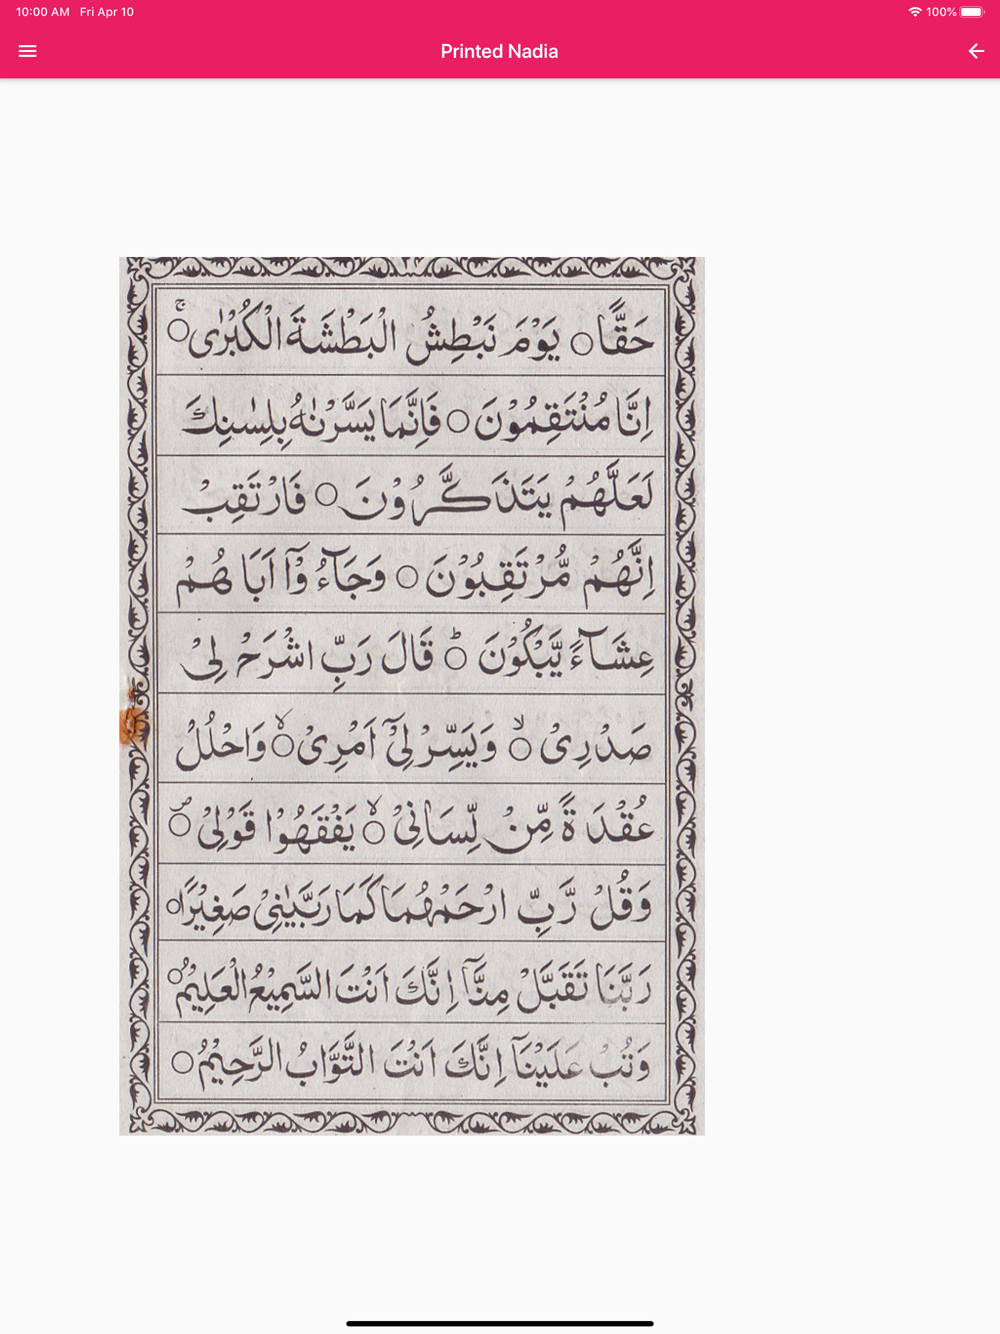 10:00 AM Fri Apr 10 100%
Printed Nadia
حَقًّا ○ يَوْمَ نَبْطِشُ الْبَطْشَةَ الْكُبْرٰى ○ ج
اِنَّا مُنْتَقِمُوْنَ ○ فَاِنَّمَا يَسَّرْنٰهُ بِلِسٰنِكَ
لَعَلَّهُمْ يَتَذَكَّرُوْنَ ○ فَارْتَقِبْ
اِنَّهُمْ مُّرْتَقِبُوْنَ ○ وَجَآءُ وْٓا اَبَا هُمْ
عِشَآءً يَّبْكُوْنَ ○ ط قَالَ رَبِّ اشْرَحْ لِىْ
صَدْرِىْ ○ لا وَيَسِّرْ لِىْٓ اَمْرِىْ ○ لا وَاحْلُلْ
عُقْدَةً مِّنْ لِّسَانِىْ ○ لا يَفْقَهُوْا قَوْلِىْ ○ ص
وَقُلْ رَّبِّ ارْحَمْهُمَا كَمَا رَبَّيٰنِىْ صَغِيْرًا ○
رَبَّنَا تَقَبَّلْ مِنَّآ اِنَّكَ اَنْتَ السَّمِيْعُ الْعَلِيْمُ ○
وَتُبْ عَلَيْنَآ اِنَّكَ اَنْتَ التَّوَّابُ الرَّحِيْمُ ○